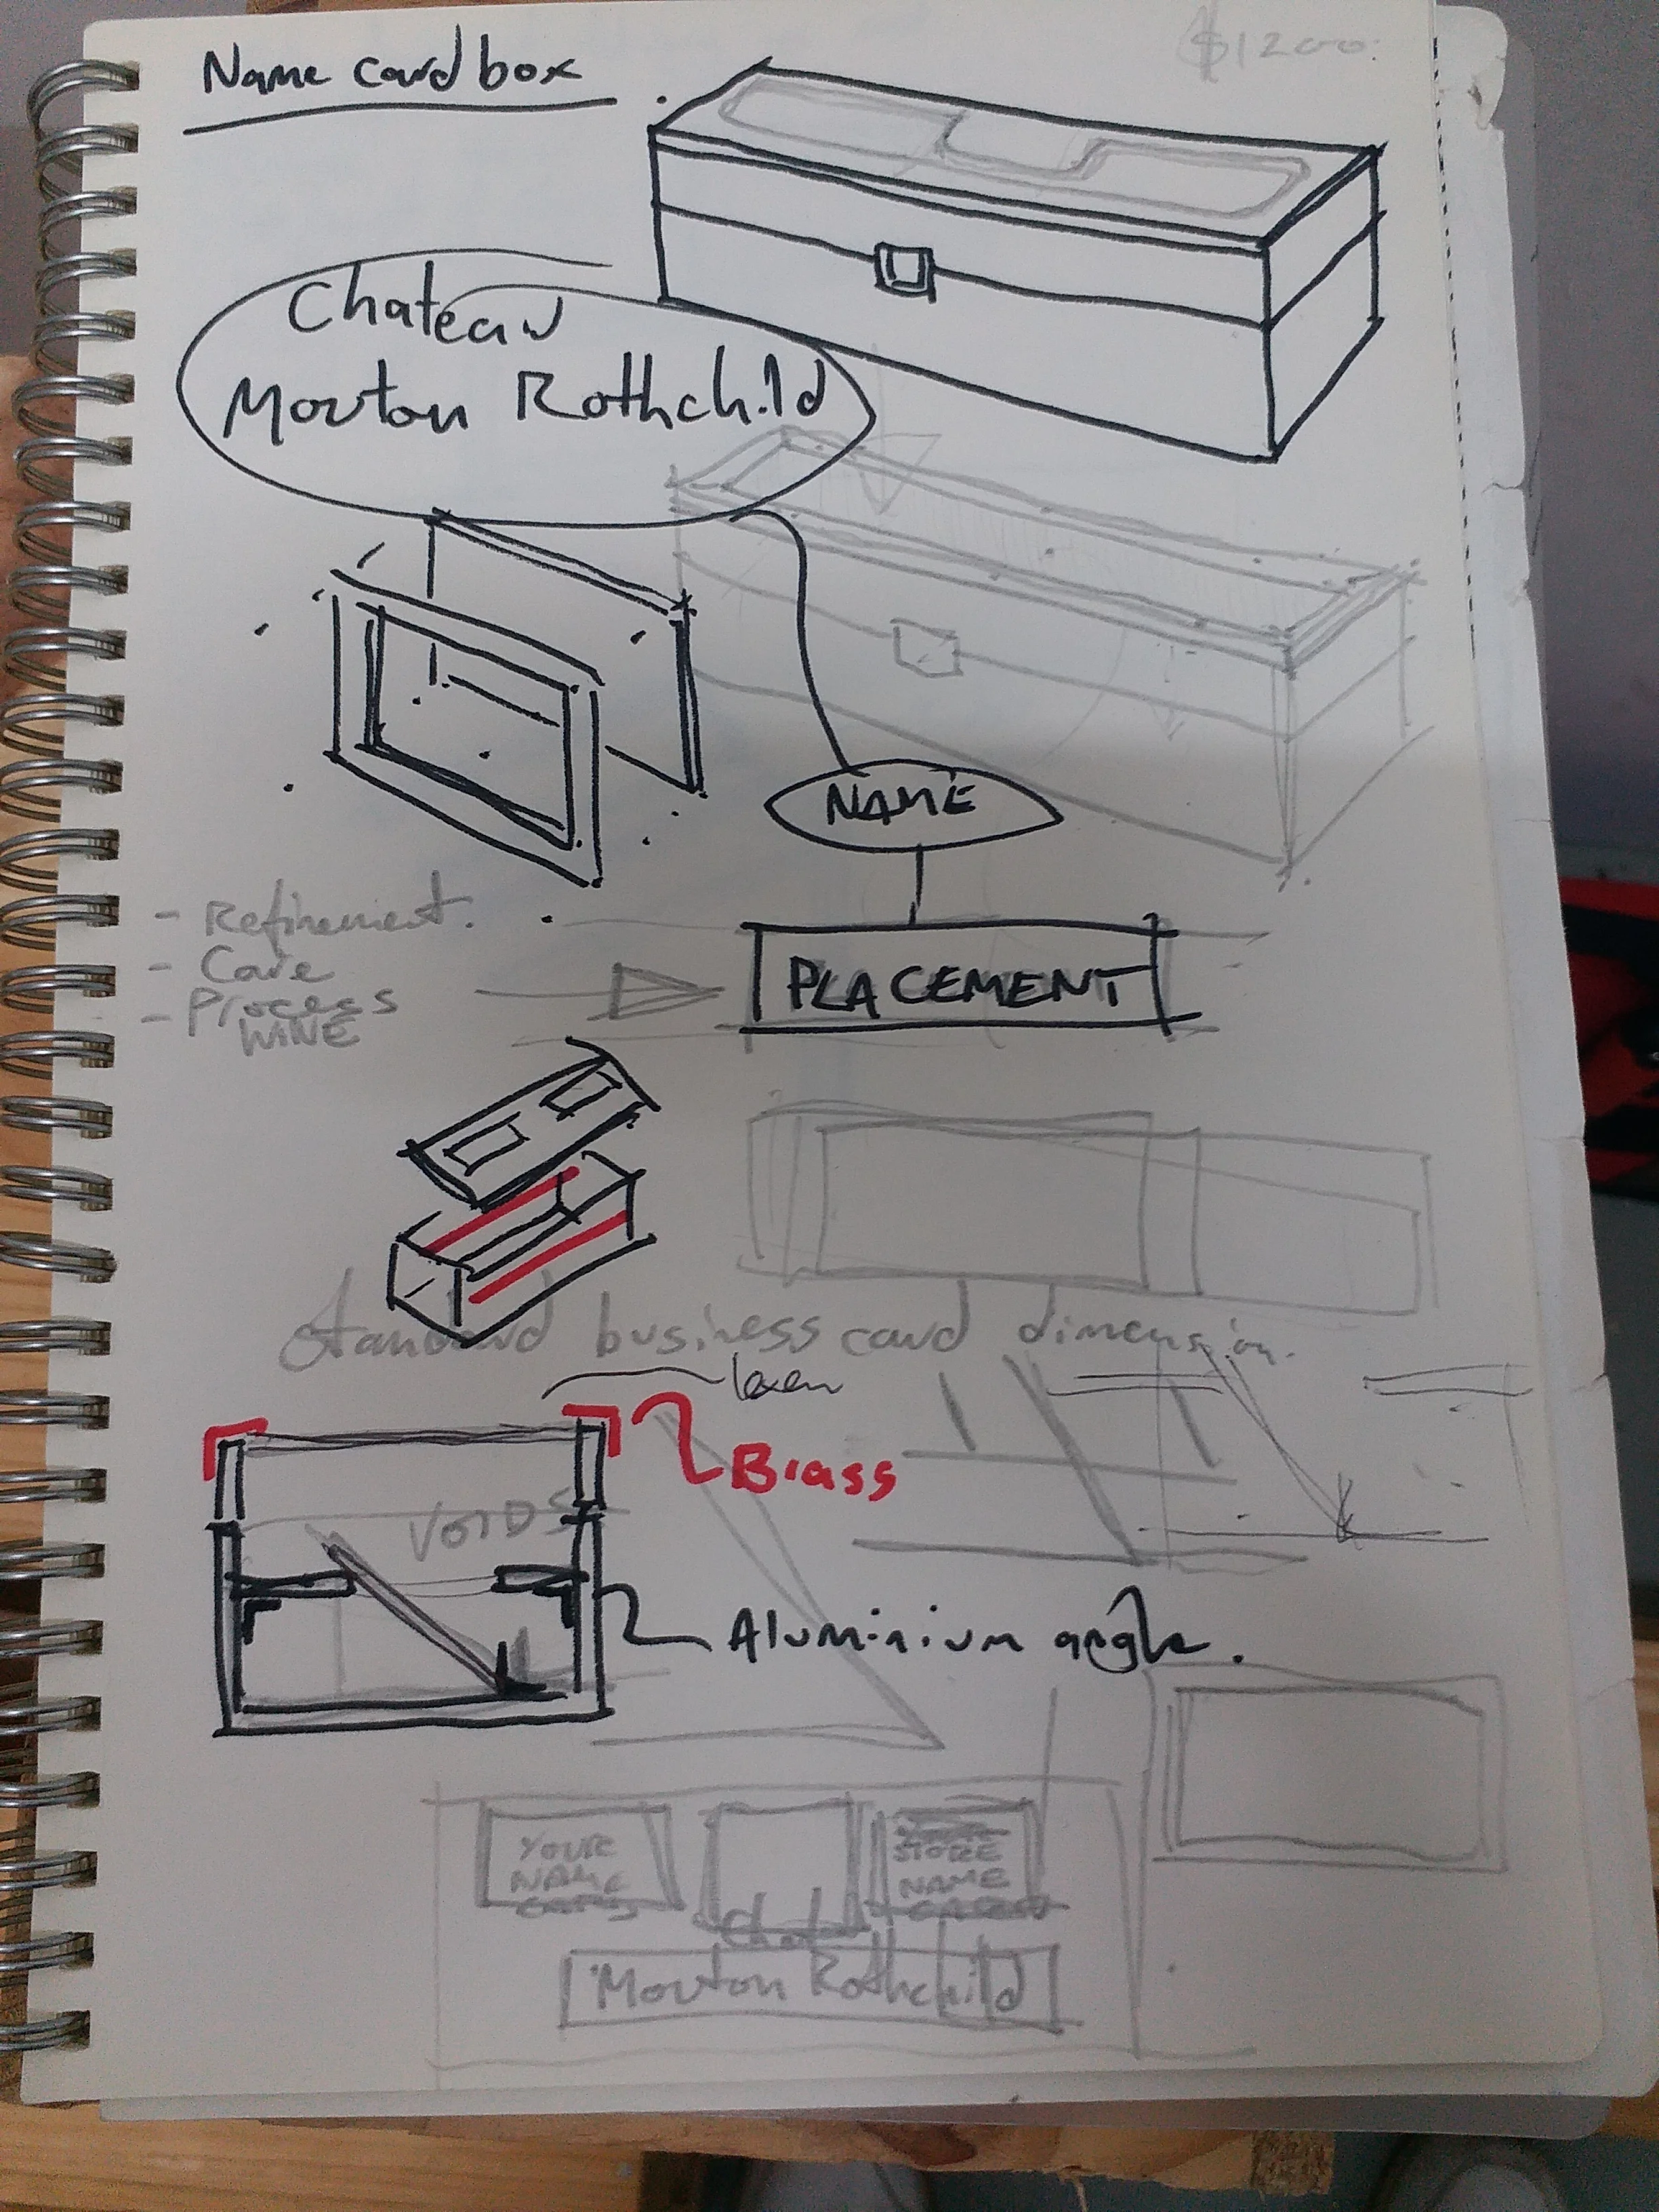 Name card box
$1200.
Chateau
Mouton Rothchild
NAME
- Refinement.
- Care
- Process
WINE
PLACEMENT
Standard business card dimension.
Brass
VOIDS
Aluminium angle.
YOUR
NAME
CARDS
STORE
NAME
Chateau
Mouton Rothchild